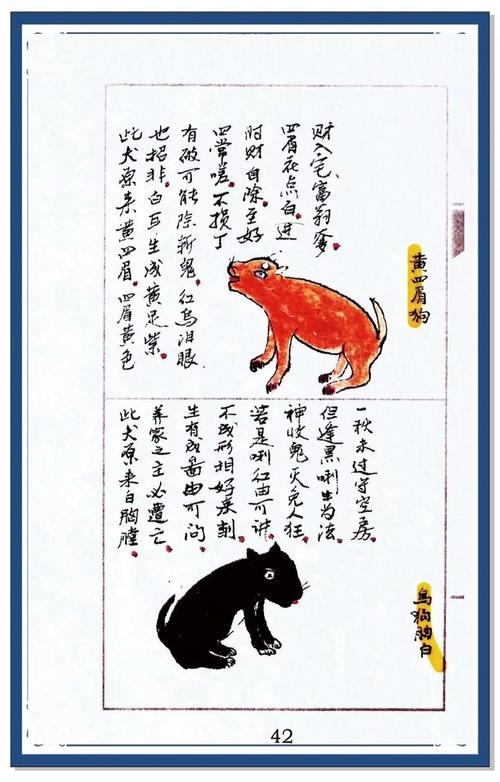 黄四眉狗
此犬原来黄四眉四眉黄色
也招非白耳生成黄足紫
有破可能除斩鬼红乌泪眼
四常嗟不损了
时财自除至好
四眉花点白进
财入宅富翁爹
乌狗胸白
此犬原来白胸膛
养家之主必遭亡
生有成畜由可问
不成形相好来制
若是唎红由可讲
神收鬼灭克人狂
但逢黑唎生为法
一秋未过守空房
42